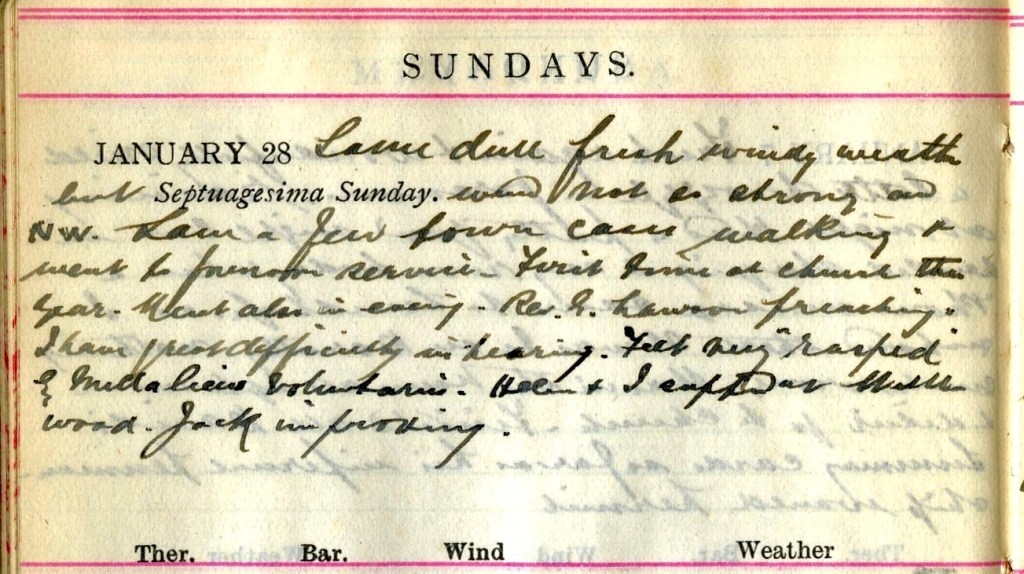 SUNDAYS.
JANUARY 28 Same dull fresh windy weath
but Septuagesima Sunday. wind not so strong and
NW. Saw a few town cars walking &
went to forenoon service - First time at church this
year. Went also in evening. Rev. G. Lawson preaching.
I have great difficulty in hearing. Felt very rasped
& Voluntaries. Helen & I supped at Westle
wood. Jack improving.
Ther. Bar. Wind Weather